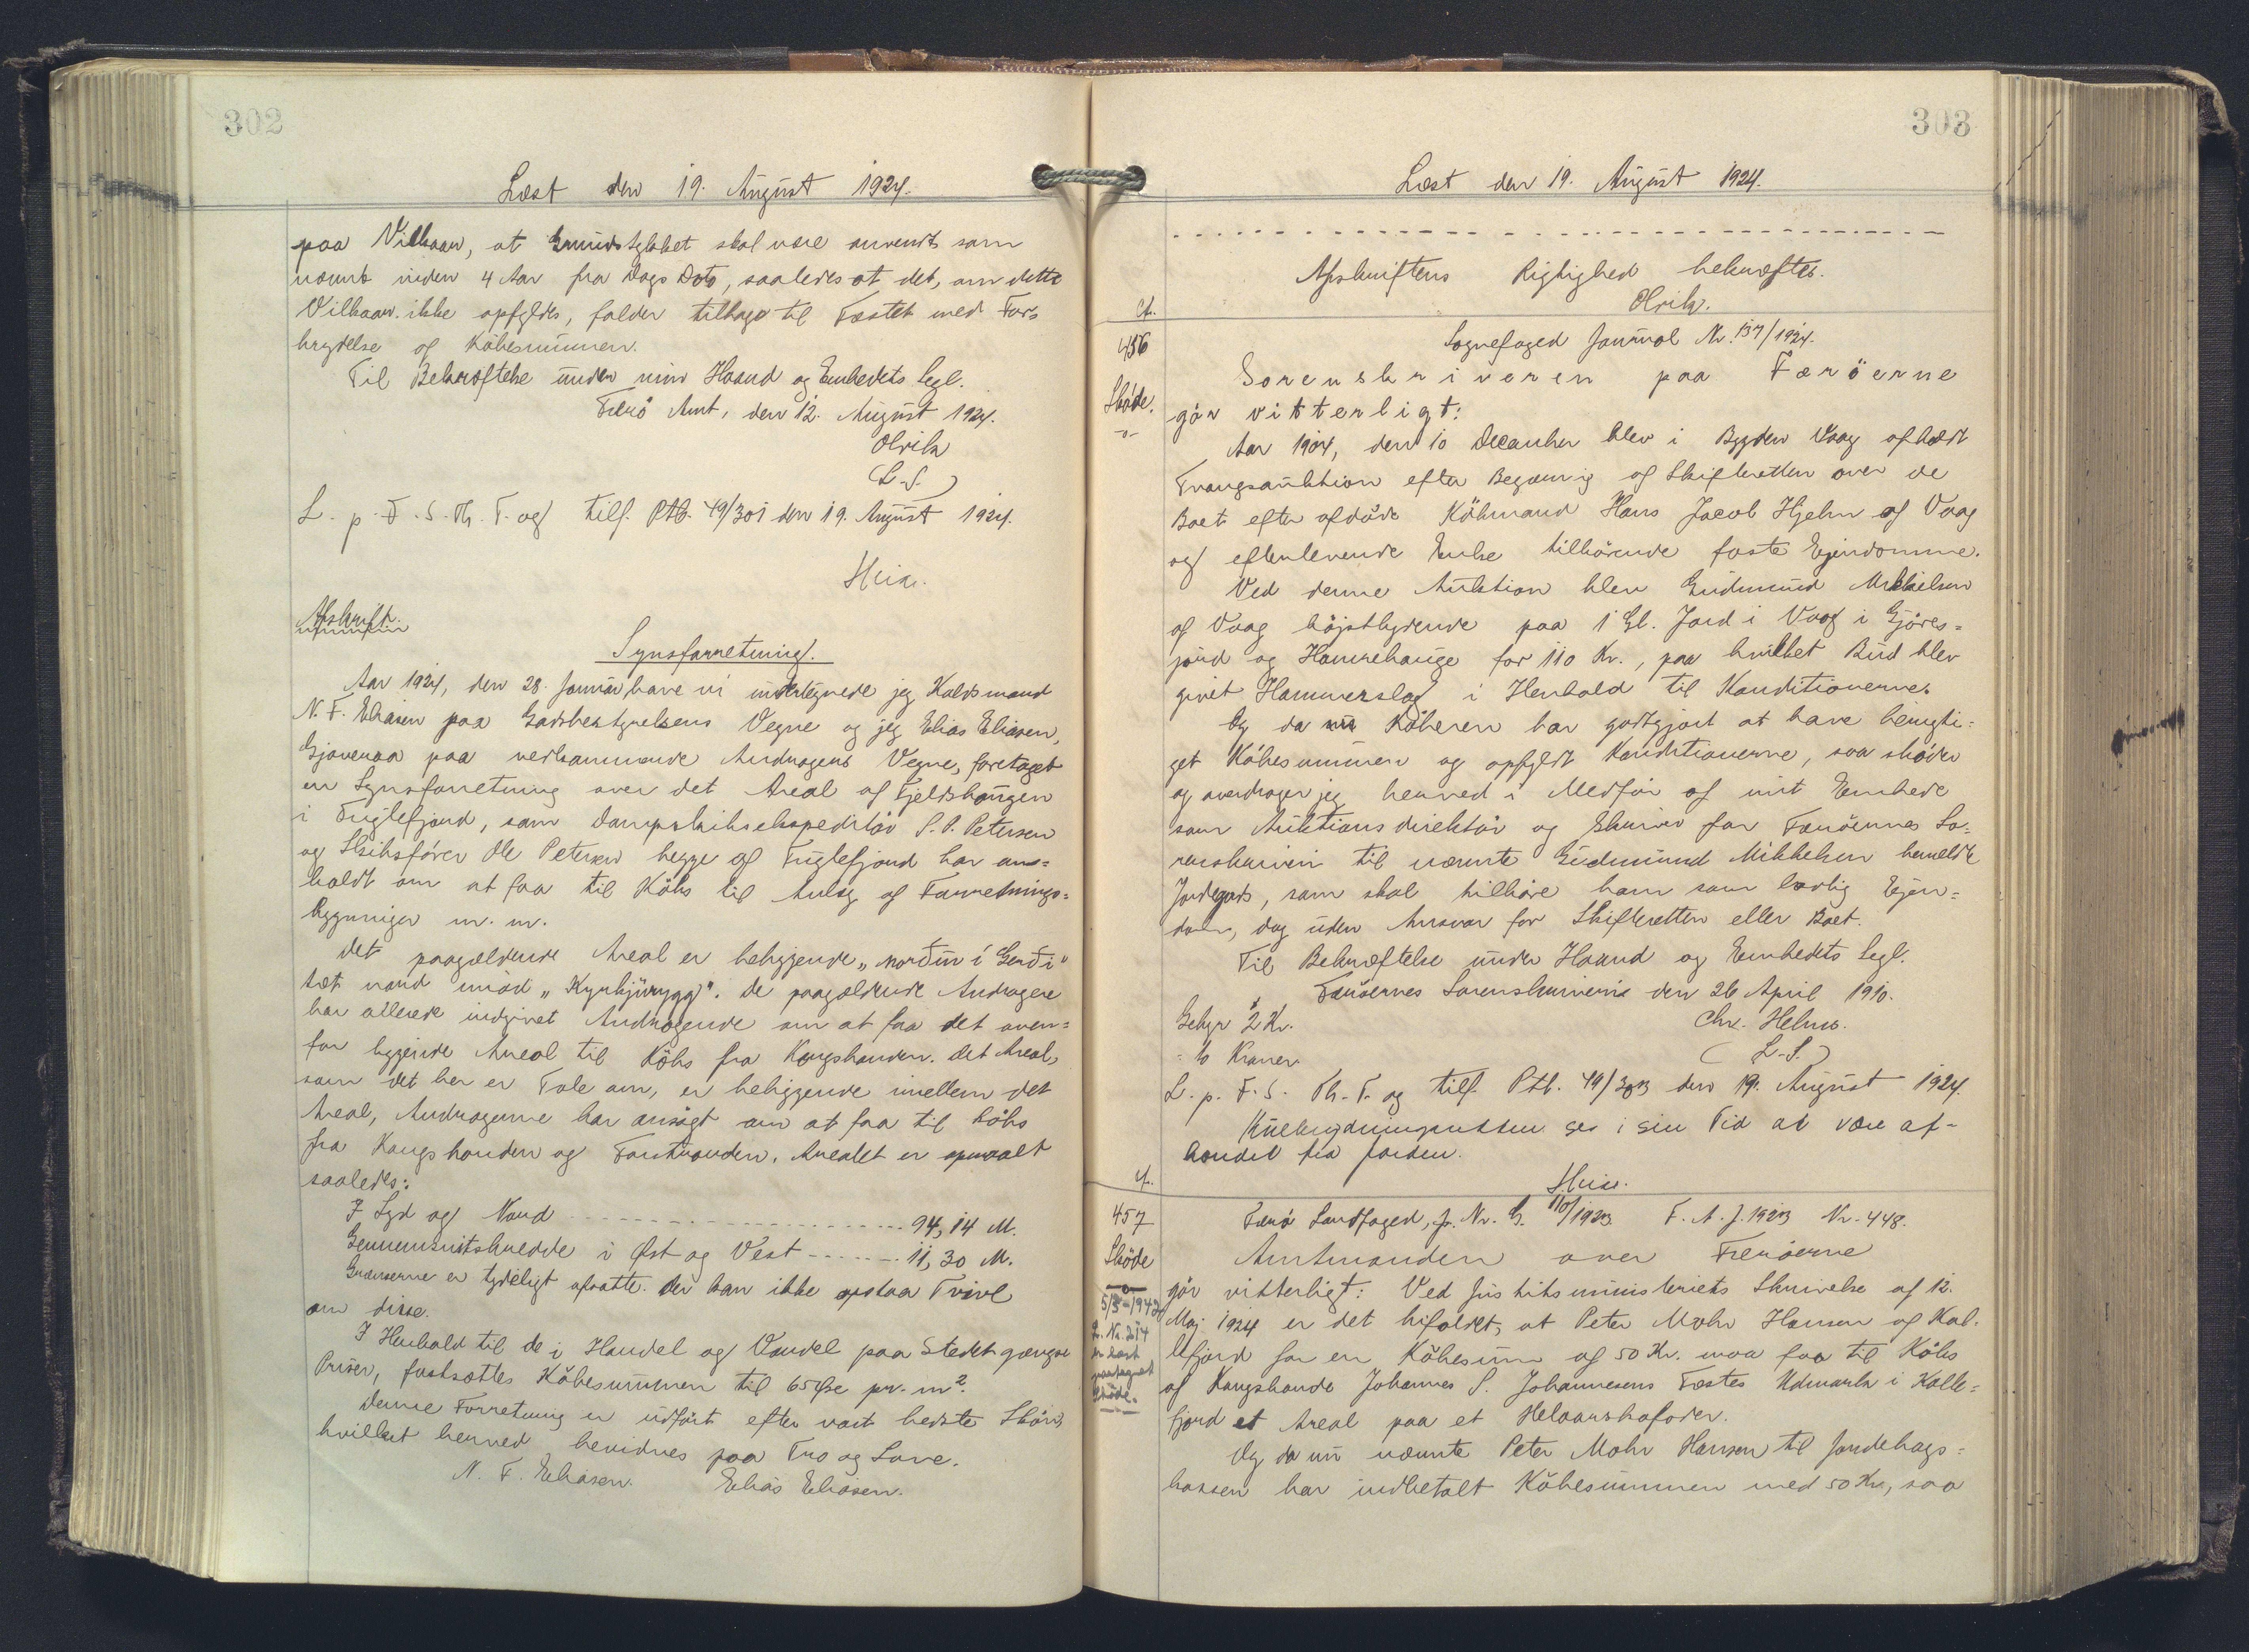 302
Læst den 19. August 1924.
paa Vilkaar, at Grundstykket skal være anvendt som
nævnt inden 4 Aar fra Dags Dato, saaledes at det, om dette
Vilkaar ikke opfyldes, falder tilbage til Fæstet med For=
brydelse af Købesummen.
Til Bekræftelse under min Haand og Embedets Segl.
Færø Amt, den 12. August 1924.
Olrik
(L.S.)
L. p. F. S. Th. T. og tilf. Ptb. 49/301 den 19. August 1924.
Heise.
Afskrift.
Synsforretning.
Aar 1924, den 28. Januar have vi undertegnede jeg Haldsmand
N. F. Eliasen paa Godsbestyrelsens Vegne og jeg Elias Eliasen,
Gjovenaa paa vedkommende Andragers Vegne, foretaget
en Synsforretning over det Areal af Fjeldshaugen
i Fuglefjord, som Dampskibsekspeditør S. P. Petersen
og Skibsfører Ole Petersen begge af Fuglefjord har an=
holdt om at faa til Købs til Anlæg af Forretnings=
bygninger m. m.
Det paagældende Areal er beliggende „norðuri í Gerði"
tæt nord imod „Kyrkjurygg". De paagældende Andragere
har allerede indgivet Andragende om at faa det oven=
for liggende Areal til Købs fra Kongsbonden. Det Areal,
som det her er Tale om, er beliggende imellem det
Areal, Andragerne har ansøgt om at faa til Købs
fra Kongsbonden og Forstranden. Arealet er opmaalt
saaledes:
I Syd og Nord - - - - - - 94,14 M.
Gennemsnitsbredde i Øst og Vest - - - - 11,30 M.
Grænserne er tydeligt afsatte. Der kan ikke opstaa Tvivl
om disse.
I Henhold til de i Handel og Vandel paa Stedet gængse
Priser, fastsættes Købesummen til 65 Øre pr. m².
Denne Forretning er udført efter vort bedste Skøn,
hvilket herved bevidnes paa Tro og Love.
N. F. Eliasen. Elias Eliasen.
303
Læst den 19. August 1924.
Afskriftens Rigtighed bekræftes.
Olrik.
456
Sognefoged Journal Nr. 137/1924.
Skøde.
Sorenskriveren paa Færöerne
gör vitterligt:
Aar 1904, den 10 December blev i Bygden Vaag afholdt
Tvangsauktion efter Begæring af Skifteretten over de
Boet efter afdøde Købmand Hans Jacob Hjelm af Vaag
og efterlevende Enke tilhørende faste Ejendomme.
Ved denne Auktion blev Gudmund Mikkelsen
af Vaag højstbydende paa 1 Gl. Jord i Vaag i Gjöres=
jord og Hamrehauge for 110 Kr., paa hvilket Bud blev
givet Hammerslag i Henhold til Konditionerne.
Og da nu Køberen har godtgjort at have berigti=
get Købesummen og opfyldt Konditionerne, saa skøder
og overdrager jeg herved i Medfør af mit Embede
som Auktionsdirektør og Skriver for Færøernes So=
renskriveri til nævnte Gudmund Mikkelsen bemeldte
Jordegods, som skal tilhøre ham som lovlig Ejen=
dom, dog uden Ansvar for Skifteretten eller Boet.
Til Bekræftelse under Haand og Embedets Segl.
Færøernes Sorenskriveri den 26 April 1910.
Gebyr 2 Kr. Chr. Helms.
= to Kroner (L.S.)
L. p. F. S. Th. T. og tilf. Ptb. 49/303 den 19. August 1924.
Kuelbrydningsretten ses i sin Tid at være af-
hændet fra Jorden.
Heise.
457
Færø Landfoged, J. Nr. G. 110/1923. F. A. J. 1923 Nr. 448.
Skøde
Amtmanden over Færøerne
gör vitterligt: Ved Justitsministeriets Skrivelse af 12.
5/3-1942
Maj 1924 er det bifaldet, at Peter Mohr Hansen af Kol-
L. Nr. 214
lefjord for en Købesum af 50 Kr. maa faa til Købs
af Kongsbonde Johannes S. Johannesens Fæstes Udmark i Kolle=
Skøde.
fjord et Areal paa et Helaarskofoder.
Og da nu nævnte Peter Mohr Hansen til Jordebogs=
kassen har indbetalt Købesummen med 50 Kr., saa